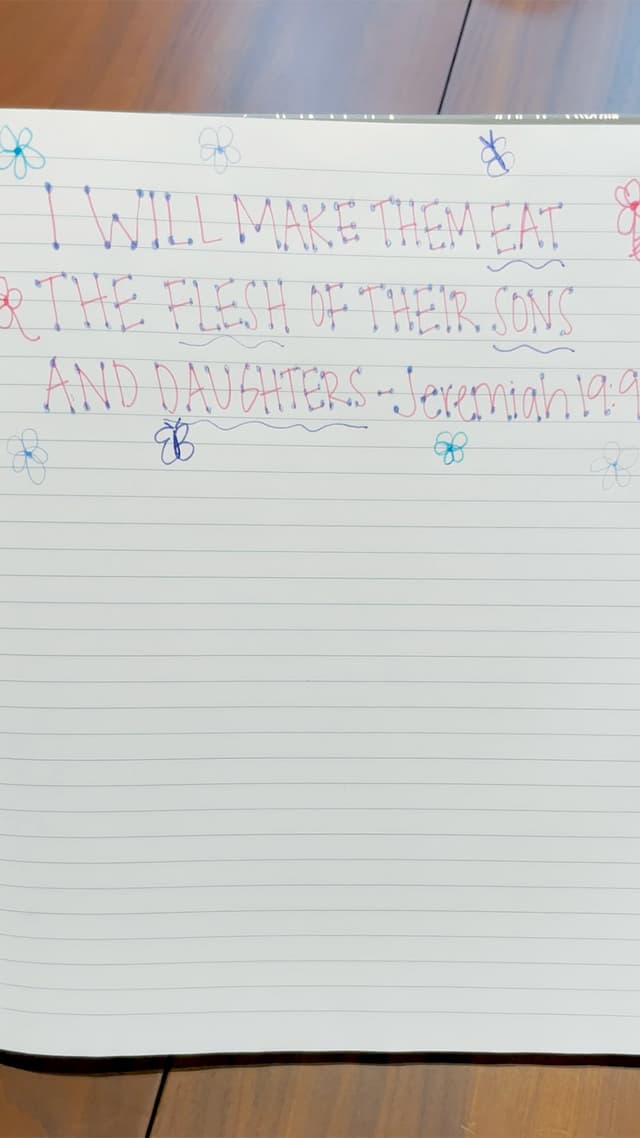 I WILL MAKE THEM EAT
THE FLESH OF THEIR SONS
AND DAUGHTERS - Jeremiah 19:9